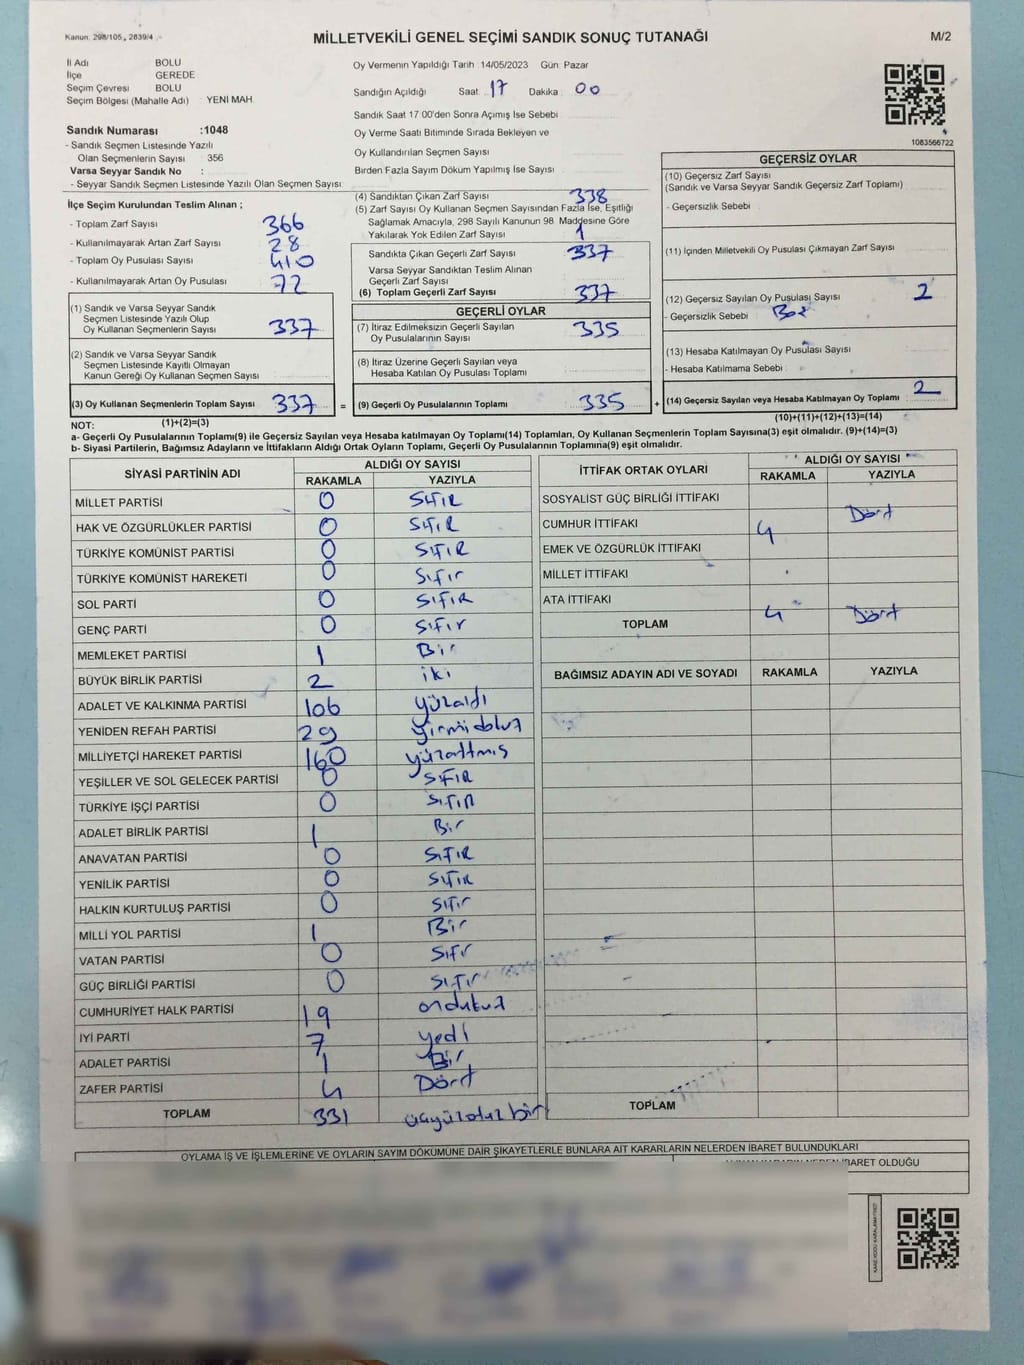 Kanun: 298/105, 2839/4
MİLLETVEKİLİ GENEL SEÇİMİ SANDIK SONUÇ TUTANAĞI
M/2
İl Adı BOLU
İlçe GEREDE
Seçim Çevresi BOLU
Seçim Bölgesi (Mahalle Adı) YENİ MAH.
Oy Vermenin Yapıldığı Tarih :14/05/2023 Gün: Pazar
Sandığın Açıldığı Saat: 17 Dakika : 00
Sandık Saat 17:00'den Sonra Açımış İse Sebebi
Oy Verme Saati Bitiminde Sırada Bekleyen ve
Oy Kullandırılan Seçmen Sayısı
Birden Fazla Sayım Döküm Yapılmış İse Sayısı
1083566722
Sandık Numarası :1048
- Sandık Seçmen Listesinde Yazılı
Olan Seçmenlerin Sayısı 356
Varsa Seyyar Sandık No :
- Seyyar Sandık Seçmen Listesinde Yazılı Olan Seçmen Sayısı:
İlçe Seçim Kurulundan Teslim Alınan ;
- Toplam Zarf Sayısı 366
- Kullanılmayarak Artan Zarf Sayısı 28
- Toplam Oy Pusulası Sayısı 410
- Kullanılmayarak Artan Oy Pusulası 72
(1) Sandık ve Varsa Seyyar Sandık
Seçmen Listesinde Yazılı Olup
Oy Kullanan Seçmenlerin Sayısı 337
(2) Sandık ve Varsa Seyyar Sandık
Seçmen Listesinde Kayıtlı Olmayan
Kanun Gereği Oy Kullanan Seçmen Sayısı
(3) Oy Kullanan Seçmenlerin Toplam Sayısı 337 =
(1)+(2)=(3)
(4) Sandıktan Çıkan Zarf Sayısı 338
(5) Zarf Sayısı Oy Kullanan Seçmen Sayısından Fazla İse, Eşitliği
Sağlamak Amacıyla, 298 Sayılı Kanunun 98. Maddesine Göre
Yakılarak Yok Edilen Zarf Sayısı 1
Sandıkta Çıkan Geçerli Zarf Sayısı 337
Varsa Seyyar Sandıktan Teslim Alınan
Geçerli Zarf Sayısı
(6) Toplam Geçerli Zarf Sayısı 337
GEÇERLİ OYLAR
(7) İtiraz Edilmeksizin Geçerli Sayılan
Oy Pusulalarının Sayısı 335
(8) İtiraz Üzerine Geçerli Sayılan veya
Hesaba Katılan Oy Pusulası Toplamı
(9) Geçerli Oy Pusulalarının Toplamı 335 +
GEÇERSİZ OYLAR
(10) Geçersiz Zarf Sayısı
(Sandık ve Varsa Seyyar Sandık Geçersiz Zarf Toplamı)
- Geçersizlik Sebebi
(11) İçinden Milletvekili Oy Pusulası Çıkmayan Zarf Sayısı
(12) Geçersiz Sayılan Oy Pusulası Sayısı 2
- Geçersizlik Sebebi
(13) Hesaba Katılmayan Oy Pusulası Sayısı
- Hesaba Katılmama Sebebi
(14) Geçersiz Sayılan veya Hesaba Katılmayan Oy Toplamı 2
(10)+(11)+(12)+(13)=(14)
NOT:
a- Geçerli Oy Pusulalarının Toplamı(9) ile Geçersiz Sayılan veya Hesaba katılmayan Oy Toplamı(14) Toplamları, Oy Kullanan Seçmenlerin Toplam Sayısına(3) eşit olmalıdır. (9)+(14)=(3)
b- Siyasi Partilerin, Bağımsız Adayların ve İttifakların Aldığı Ortak Oyların Toplamı, Geçerli Oy Pusulalarının Toplamına(9) eşit olmalıdır.
SİYASİ PARTİNİN ADI ALDIĞI OY SAYISI
RAKAMLA YAZIYLA
MİLLET PARTİSİ 0 SIFIR
HAK VE ÖZGÜRLÜKLER PARTİSİ 0 SIFIR
TÜRKİYE KOMÜNİST PARTİSİ 0 SIFIR
TÜRKİYE KOMÜNİST HAREKETİ 0 Sıfır
SOL PARTİ 0 SIFIR
GENÇ PARTİ 0 SIFIR
MEMLEKET PARTİSİ 1 Bir
BÜYÜK BİRLİK PARTİSİ 2 iki
ADALET VE KALKINMA PARTİSİ 106 yüzaldı
YENİDEN REFAH PARTİSİ 29 yirmidokuz
MİLLİYETÇİ HAREKET PARTİSİ 160 yüzaltmış
YEŞİLLER VE SOL GELECEK PARTİSİ 0 SIFIR
TÜRKİYE İŞÇİ PARTİSİ 0 SIFIR
ADALET BİRLİK PARTİSİ 1 Bir
ANAVATAN PARTİSİ 0 SIFIR
YENİLİK PARTİSİ 0 SIFIR
HALKIN KURTULUŞ PARTİSİ 0 SIFIR
MİLLİ YOL PARTİSİ 1 Bir
VATAN PARTİSİ 0 SIFIR
GÜÇ BİRLİĞİ PARTİSİ 0 SIFIR
CUMHURİYET HALK PARTİSİ 19 ondukuz
İYİ PARTİ 7 yedi
ADALET PARTİSİ 1 Bir
ZAFER PARTİSİ 4 Dört
TOPLAM 331 üçyüzotuzbir
İTTİFAK ORTAK OYLARI ALDIĞI OY SAYISI
RAKAMLA YAZIYLA
SOSYALİST GÜÇ BİRLİĞİ İTTİFAKI
CUMHUR İTTİFAKI 4 Dört
EMEK VE ÖZGÜRLÜK İTTİFAKI
MİLLET İTTİFAKI
ATA İTTİFAKI
TOPLAM 4 Dört
BAĞIMSIZ ADAYIN ADI VE SOYADI RAKAMLA YAZIYLA
TOPLAM
OYLAMA İŞ VE İŞLEMLERİNE VE OYLARIN SAYIM DÖKÜMÜNE DAİR ŞİKAYETLERLE BUNLARA AİT KARARLARIN NELERDEN İBARET BULUNDUKLARI
İBARET OLDUĞU